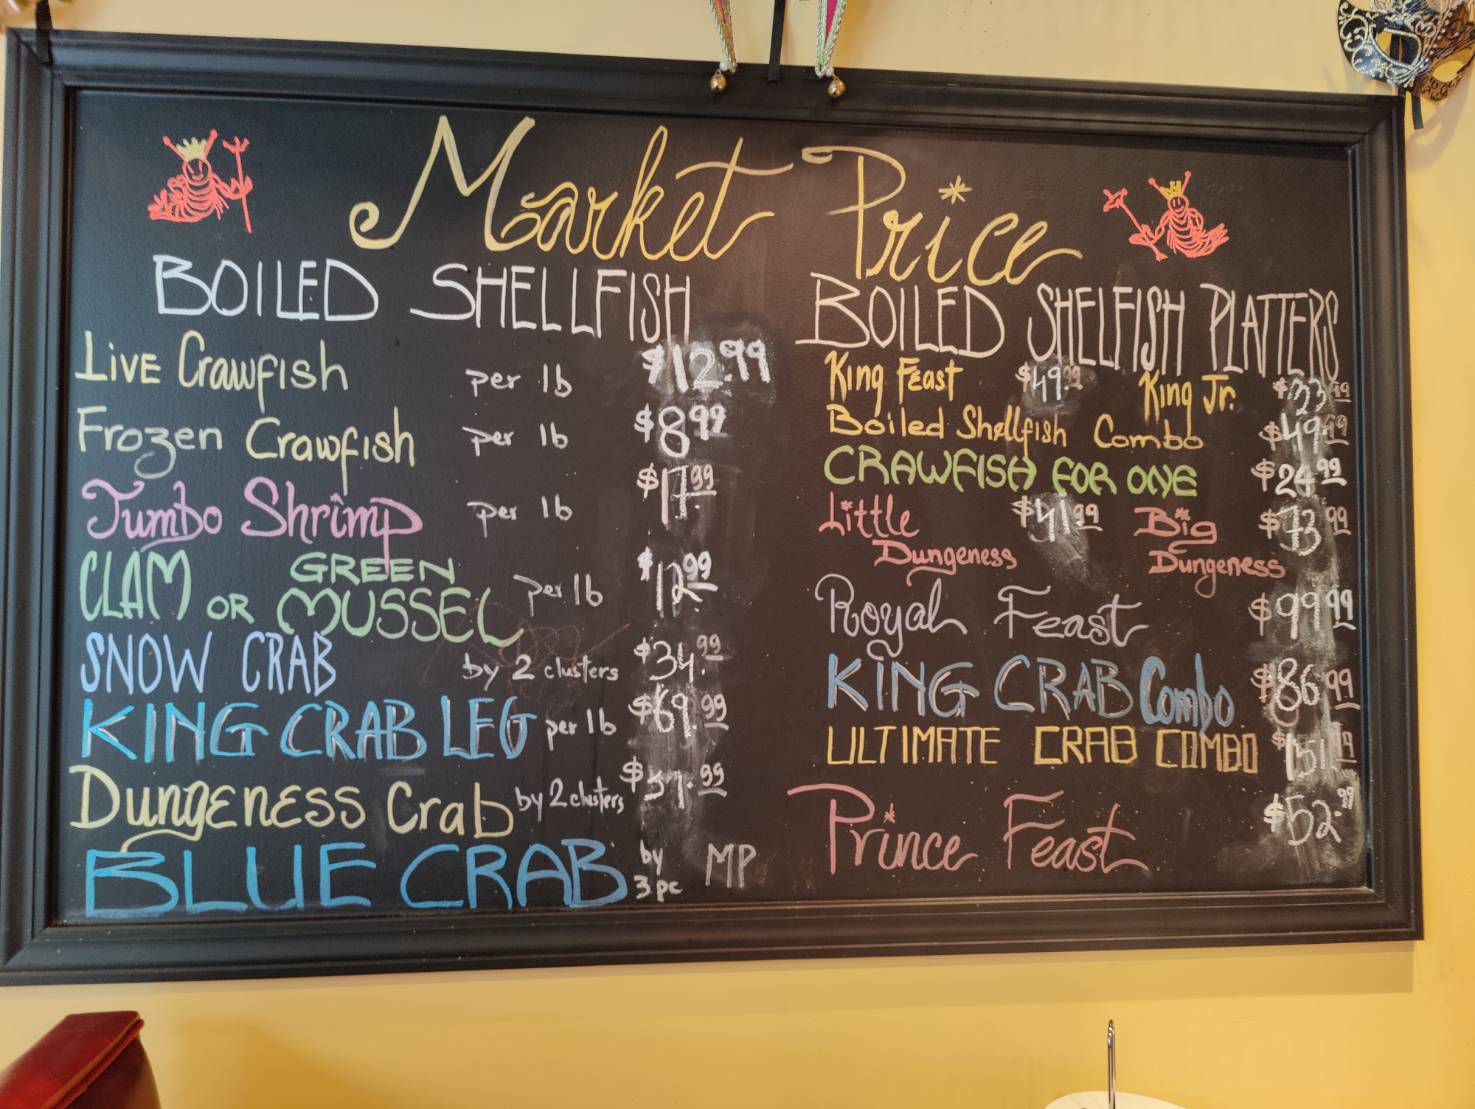 Market Price
BOILED SHELLFISH
Live Crawfish per lb $12.99
Frozen Crawfish per lb $8.99
Jumbo Shrimp per lb $17.99
CLAM OR GREEN MUSSEL per lb $12.99
SNOW CRAB by 2 clusters $34.99
KING CRAB LEG per lb $69.99
Dungeness Crab by 2 clusters
BLUE CRAB by 3pc MP
BOILED SHELFISH PLATTERS
King Feast $49.99 King Jr. $33.99
Boiled Shellfish Combo $49.99
CRAWFISH FOR ONE $24.99
Little Dungeness $41.99 Big Dungeness $73.99
Royal Feast $99.99
KING CRAB Combo $86.99
ULTIMATE CRAB COMBO $151.99
Prince Feast $52.99